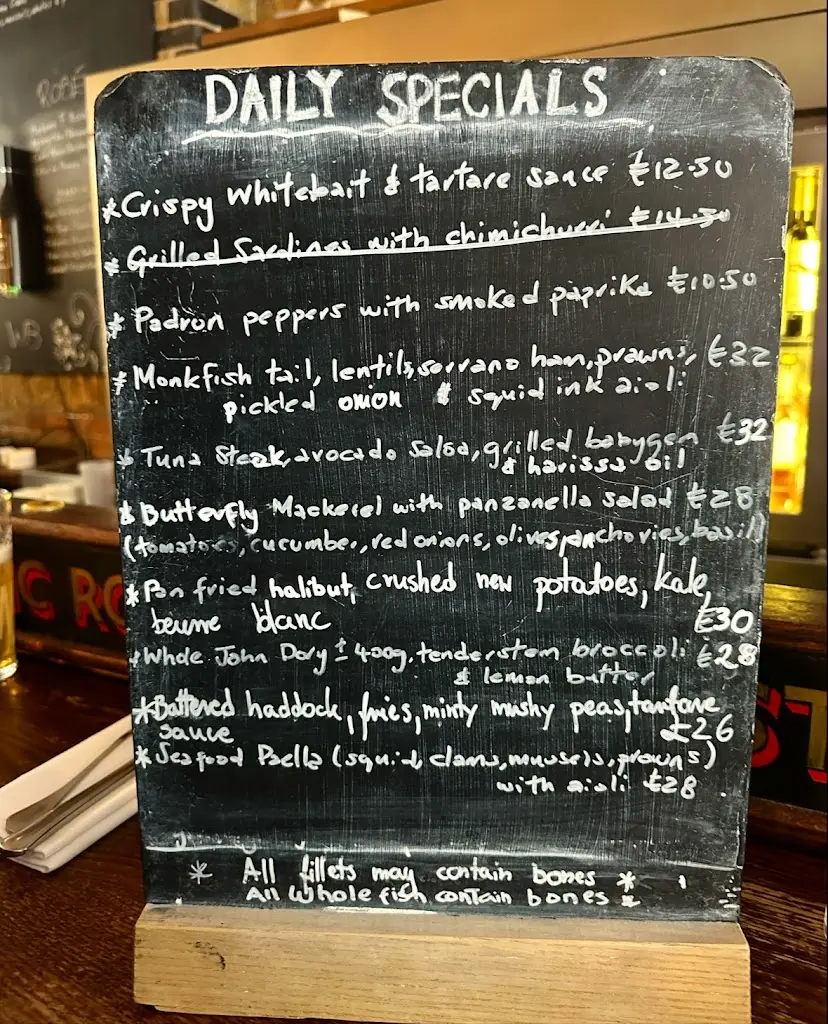 DAILY SPECIALS
*Crispy Whitebait & tartare sauce £12.50
* Grilled Sardines with chimichurri £14.50
* Padron peppers with smoked paprika £10.50
* Monkfish tail, lentils, serrano ham, prawns, £32
pickled onion & squid ink aioli
* Tuna Steak, avocado Salsa, grilled babygem £32
& harissa oil
* Butterfly Mackerel with panzanella salad £28
(tomatoes, cucumber, red onions, olives, anchovies, basil)
*Pan fried halibut, crushed new potatoes, kale,
beurre blanc £30
* Whole John Dory ± 400g, tenderstem broccoli £28
& lemon butter
*Battered haddock, fries, minty mushy peas, tartare
sauce £26
* Seafood Paella (squid, clams, mussels, prawns)
with aioli £28
* All fillets may contain bones *
All Whole fish contain bones *
ROSÉ
IC RO
ST